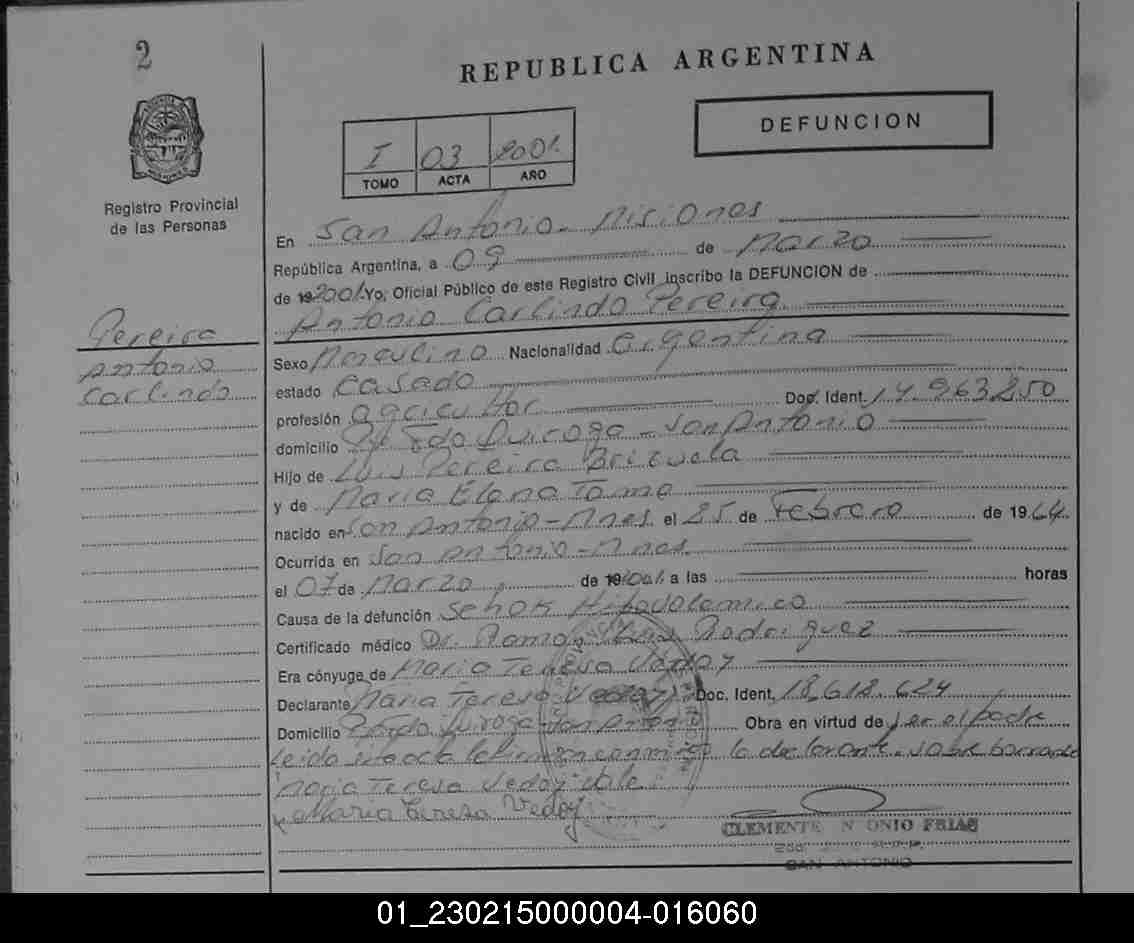 2
REPUBLICA ARGENTINA
DEFUNCION
I 03 2001
TOMO ACTA AÑO
Registro Provincial
de las Personas
En San Antonio - Misiones
República Argentina, a 09 de Marzo
de 192001 Yo, Oficial Público de este Registro Civil inscribo la DEFUNCION de
Antonio Carlindo Pereira
Pereira
Antonio
Carlindo
Sexo Masculino Nacionalidad Argentina
estado Casado
profesión agricultor Doc. Ident. 17.963.250
domicilio Quiroga - San Antonio
Hijo de Luis Pereira Brizuela
y de Maria Elena
nacido en San Antonio - Mnes. el 25 de Febrero de 1964
Ocurrida en San Antonio - Mnes.
el 07 de Marzo de 192001 a las horas
Causa de la defunción Schok Hipovolemico
Certificado médico Dr. Ramon Rodriguez
Era cónyuge de Maria Teresa Vedoy
Declarante Maria Teresa Vedoy Doc. Ident. 18.618.624
Domicilio Quiroga San Antonio Obra en virtud de
leido el acta la firman conmigo la declarante. sobre borrado
Maria Teresa Vedoy vale
Maria Teresa Vedoy
CLEMENTE ONIO FRIAS
SAN ANTONIO
01_230215000004-016060